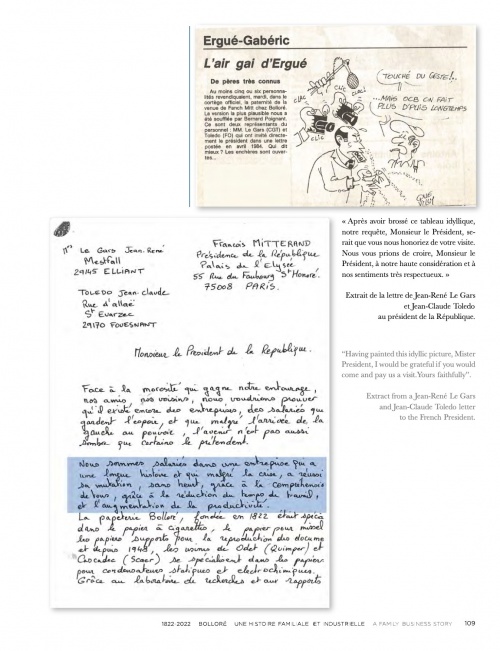 Ergué-Gabéric
L'air gai d'Ergué
De pères très connus
Au moins cinq ou six personna-
lités revendiquaient, mardi, dans le
cortège officiel, la paternité de la
venue de Fanch Mitt chez Bolloré.
La version la plus plausible nous a
été soufflée par Bernard Poignant.
Ce sont deux représentants du
personnel : MM. Le Gars (CGT) et
Toledo (FO) qui ont invité directe-
ment le président dans une lettre
postée en avril 1984. Qui dit
mieux ? Les enchères sont ouver-
tes...
CLIC
CLIC
CLAC!
CLIC
TOUCHÉ DU GESTE!..
...MAIS OCB ON FAIT
PLUS D'PIPES LONGTEMPS
« Après avoir brossé ce tableau idyllique,
notre requête, Monsieur le Président, se-
rait que vous nous honoriez de votre visite.
Nous vous prions de croire, Monsieur le
Président, à notre haute considération et à
nos sentiments très respectueux. »
Extrait de la lettre de Jean-René Le Gars
et Jean-Claude Toledo
au président de la République.
"Having painted this idyllic picture, Mister
President, I would be grateful if you would
come and pay us a visit. Yours faithfully".
Extract from a Jean-René Le Gars
and Jean-Claude Toledo letter
to the French President.
Mrs Le Gars Jean-René
Mestfall
29145 ELLIANT
TOLEDO Jean-claude
Rue d'allaë
St Evarzec
29170 FOUESNANT
Francois MITTERAND
Présidence de la République
Palais de l'Elysée
55 Rue du Faubourg St Honoré.
75008 PARIS.
Monsieur le President de la Republique.
Face à la morosité qui gagne notre entourage,
nos amis, nos voisins, nous voudrions prouver
qu'il existe encore des entreprises, des salariés qui
gardent l'espoir, et que malgré l'arrivée de la
gauche au pouvoir, l'avenir n'est pas aussi
sombre que certains le prétendent.
Nous sommes salariés dans une entreprise qui a
une longue histoire et qui malgré la crise, a réussi
sa mutation, sans heurt, grâce à la compréhension
de tous, grâce à la réduction du temps de travail,
et l'augmentation de la productivité.
La papeterie Bolloré, fondée en 1822 était spécia
dans le papier à cigarettes, le papier pour missel
les papiers supports pour la reproduction des docume
et depuis 1948, les usines de Odet (Quimper) et
Cascadec (Scaer) se spécialisent dans les papiers
pour condensateurs statiques et electrochimiques.
Grâce au laboratoire de recherches et aux rapports
1822-2022 BOLLORÉ UNE HISTOIRE FAMILIALE ET INDUSTRIELLE A FAMILY BUSINESS STORY 109